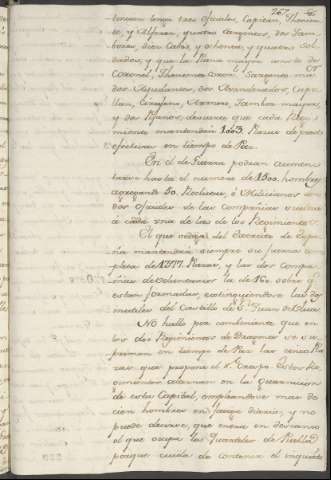 267
tengan luego tres oficiales, Capitan, Thenien-
te, y Alferez, quatro Sargentos, dos Tam-
bores, diez Cabos, y ochenta, y quatro sol-
dados, y que la Plana mayor conste de
Coronel, Theniente Coronel, Sargento ma-
yor, dos Ayudantes, dos Abanderados, Cape-
llan, Cirujano, Armero, Tambor mayor,
y dos Pifanos, de suerte que cada Regi-
miento mantendrá 1003. Plazas de
efectivas en tiempo de Paz.
En el de Guerra podrian aumen-
tarse hasta el numero de 1300. hombres
agregando 50. Reclutas, ó Milicianos
y dos oficiales de las Compañias sueltas
á cada una de las de los Regimientos.
El que venga del Exercito de Espa-
ña mantendrá siempre su fuerza com-
pleta de 1377. Plazas, y las dos compa-
ñias de Voluntarios la de 160 sobre que
estan formadas, extinguiendose las
del Castillo de Sn. Juan de Ulua.
No hallo por combeniente que en
los dos Regimientos de Dragones se su-
priman en tiempo de Paz las cien Pla-
zas que propone el Sr. Crespo. Estos Re-
gimientos alternan en la Guarnicion
de esta Capital, empleandose mas de
cien hombres en fatigas diarias, y no
puede decirse, que enerva en descanso
el que ocupa los Quarteles de Puebla
porque cuida de contener el inquieto